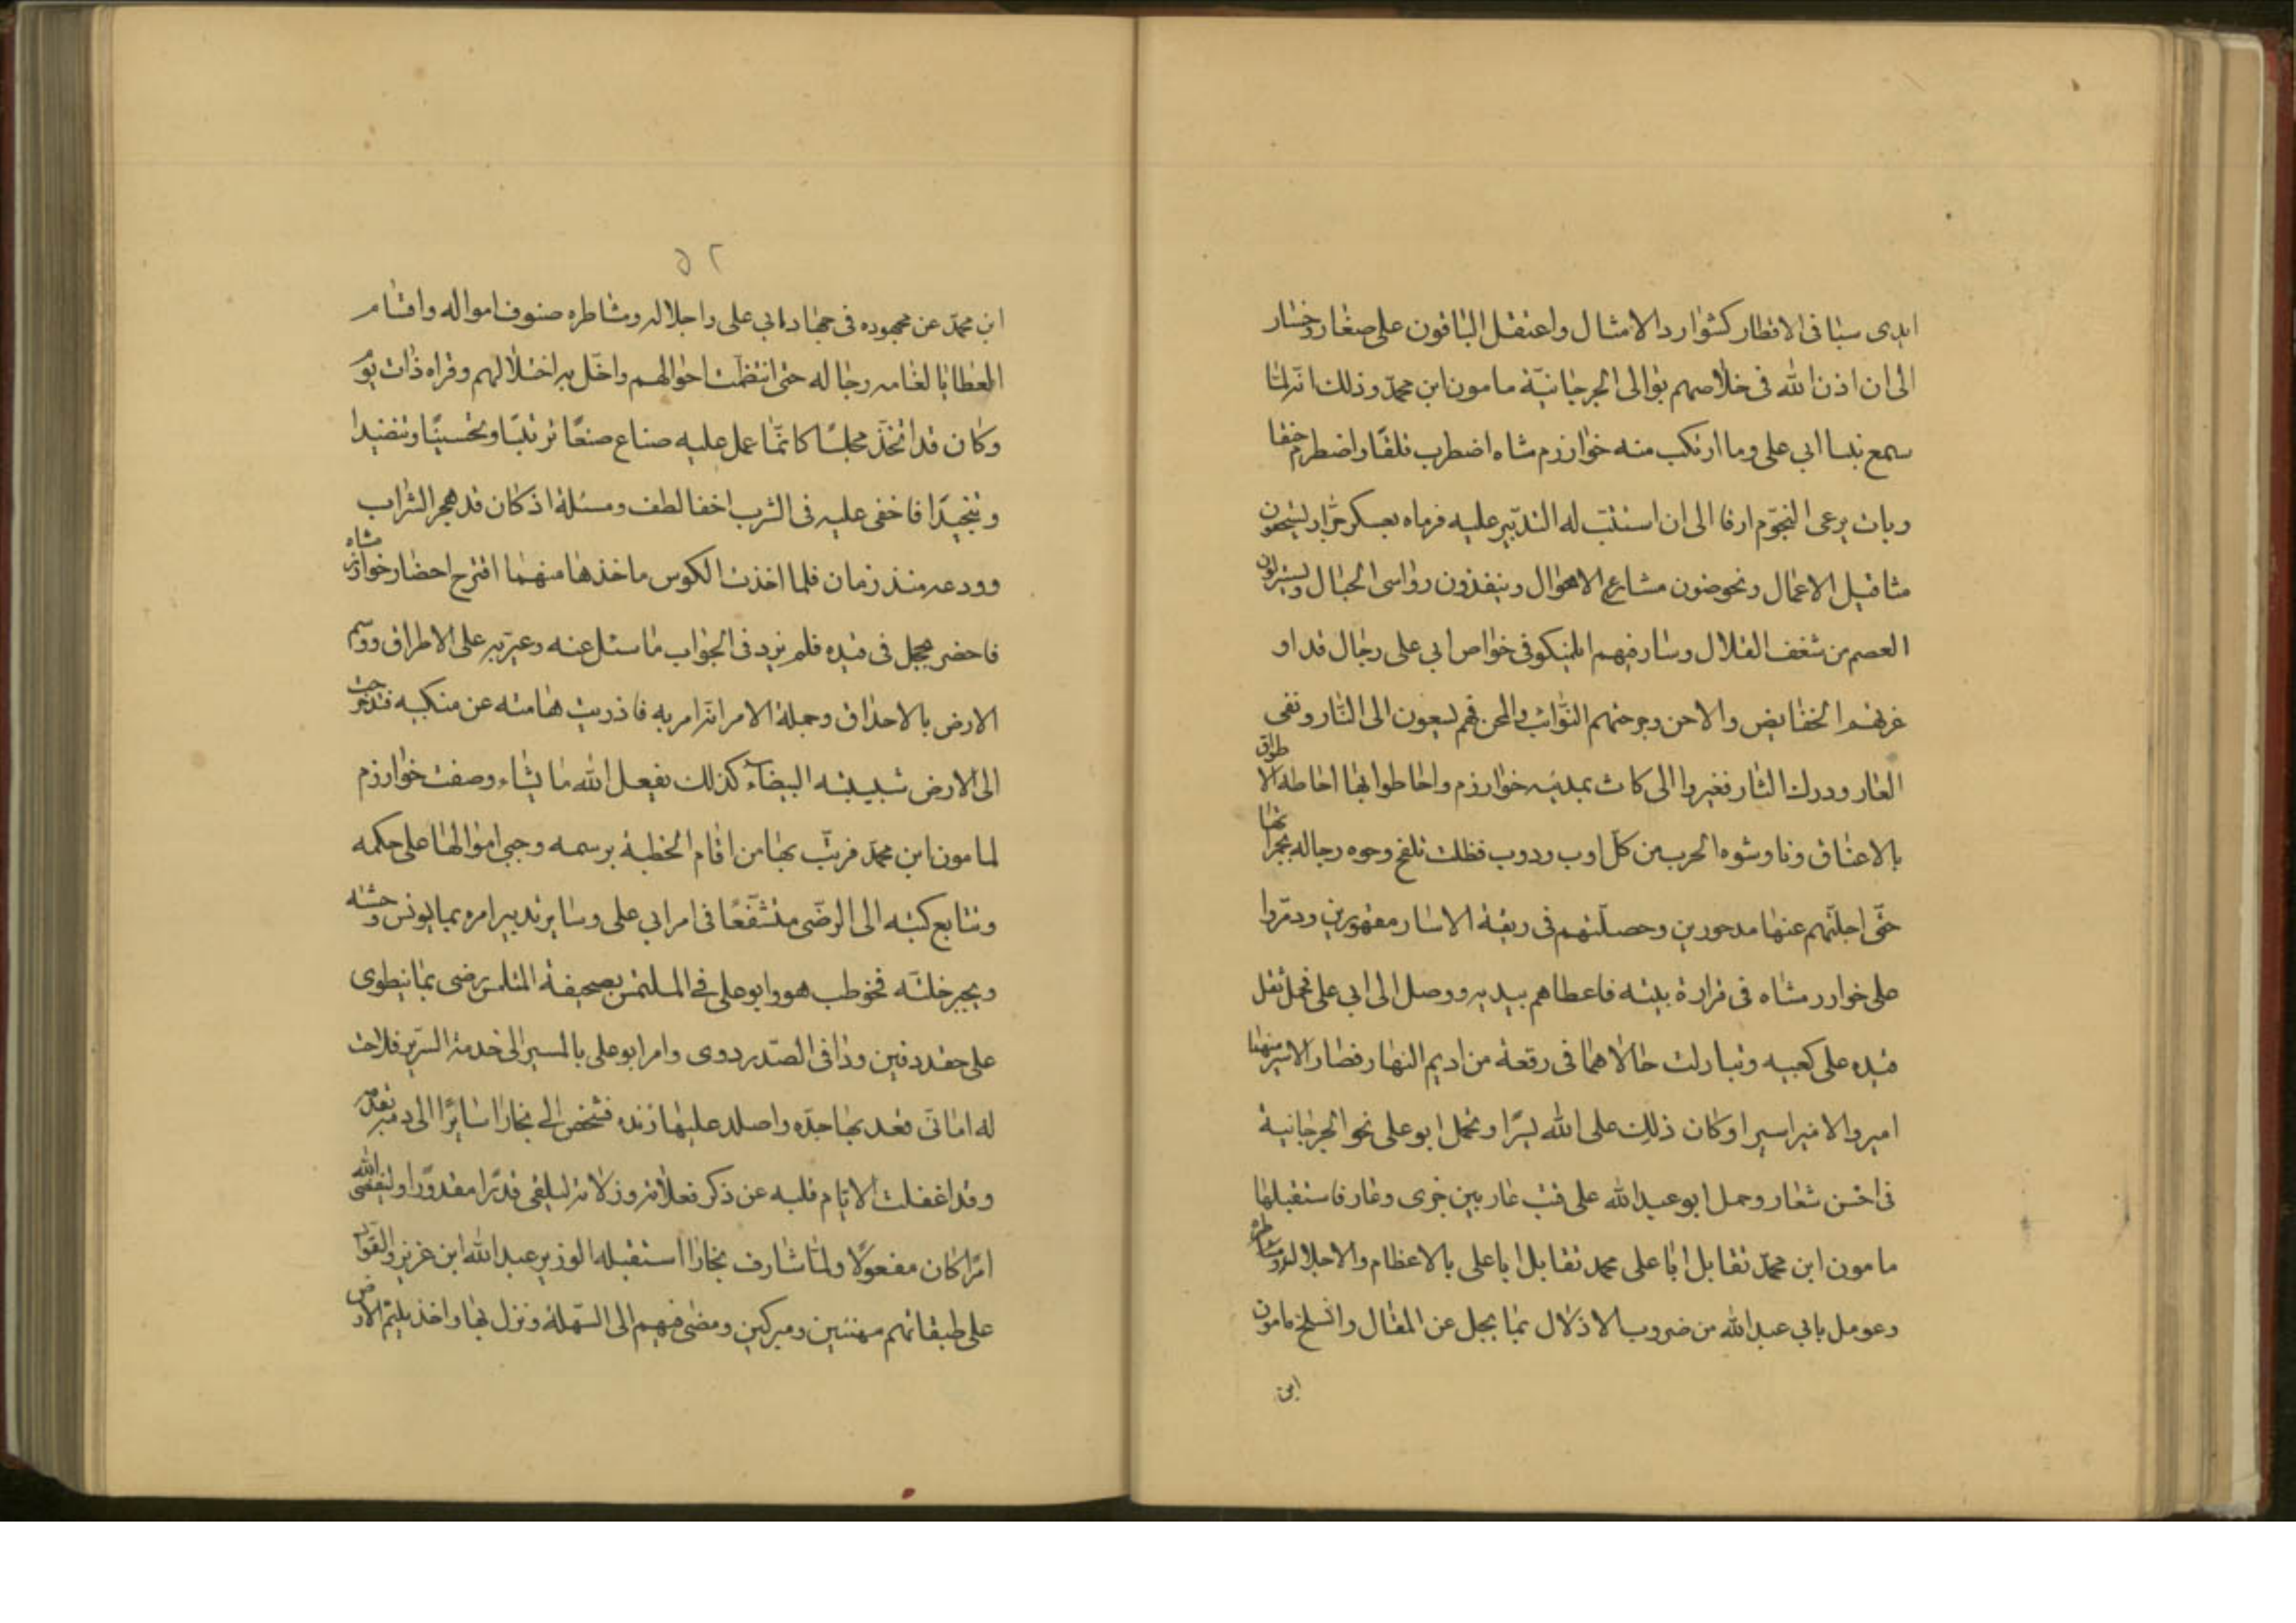 ايدى سبا فى الاقطار كشوارد الامثال واعتقل الباقون على صغار وخسار
الى ان اذن الله فى خلاصهم بوالى الجرجانيّة مامون ابن محمّد وذلك انّه لمّا
سمع نبسا ابى على وما ارتكب منه خوارزم شاه اضطرب قلقًا واضطرم حنقا
وبات يرعى النجوم ارقا الى ان استتبّ له التدبير عليه فرماه بعسكر جرّار
مثاقيل الاعمال ونحوضون مشارع الاهوال وينفذون رواسى الجبال
العصم من شغف القلال وسار فيهم ايلمنكو فى خواص ابى على رجال قد او
غرتهم الحفايض والاحن وجرحتهم النوائب والمحن فهم يسعون الى الثار ونفى
العار ودرك الثار فغيروا الى كاث بمدينه خوارزم واحاطوا بها احاطه الاطواق
بالاعناق وناوشوه الحرب من كل اوب ودوب فظلت تلفح وجوه رجاله بجمراتها
حتّى اجلتهم عنها مدحورين وحصلتهم فى ربقة الاسار مقهورين ودمّروا
على خوارزمشاه فى قرارة بيته فاعطاهم بيديه ووصل الى ابى على فحمل ثقل
قيده على كعبيه وتبادلت حالاهما فى رقعة من اديم النهار فصار الاسير منهما
اميرا والامير اسيرا وكان ذلك على الله يسيرا وحمل ابو على نحو الجرجانية
فى احسن شعار وحمل ابو عبد الله على قتب عار بين خزى وعار فاستقبلها
مامون ابن محمّد تقابل ابا على محمد تقابل ابا على بالاعظام والاجلال ومشاطره
وعومل بابى عبد الله من ضروب الاذلال بما يجل عن المقال وانسلخ مامون
ابن
٥٢
ابن محمّد عن مجهوده فى جهاد ابى على واجلاله ومشاطره صنوف امواله واقسام
العطايا لغامه رجاله حتى انتظمت احوالهم واخل به اختلالهم وقراه ذات يوم
وكان قد اتخذ مجلسًا كانّما عمل عليه صناع صنعًا ترتيبًا وتحسينًا وتنضيدا
وتنجيدًا فاخفى عليه فى الشرب اخفا لطف ومسئلة اذ كان قد هجر الشراب
وودعه منذ زمان فلما اخذت الكوس ماخذها منهما اقترح احضار خوارزم شاه
فاحضر يحجل فى قيده فلم يزد فى الجواب ما سئل عنه وعيّر به على الاطراق ووسم
الارض بالاحداق وجملة الامر انّه امر به فاذريت هامته عن منكبه فتدحرجت
الى الارض شيبته البيضاء كذلك يفعل الله ما يشاء وصفت خوارزم
لمامون ابن محمّد فرتّب بها من اقام الخطبة برسمه وجبى اموالها على حكمه
وتتابع كتبه الى الرضّى متشفّعًا فى امر ابى على وساير تدبير امره بما يونس وحشته
ويجبر خلته فخوطب هو وابو على فى الملتمس بصحيفة المتلمس رضى بما ينطوى
على حقد دفين وذا فى الصّدر دوى وامر ابو على بالمسير الى خدمة السّرير فلاحت
له امانى فقد بها جدّه واصلد عليها زنده فشخص الى بخارا سايرًا الى دمه بقدمه
وقد اغفلت الايّام قلبه عن ذكر فعلاته وزلاته ليلقى قدرًا مقدورًا وليقضى الله
امرًا كان مفعولًا ولمّا شارف بخارا استقبله الوزير عبد الله ابن عزيز والقواد
على طبقاتهم مهنئين ومبركين ومضى فيهم الى السّهلة ونزل بها واخذ يلثم الارض